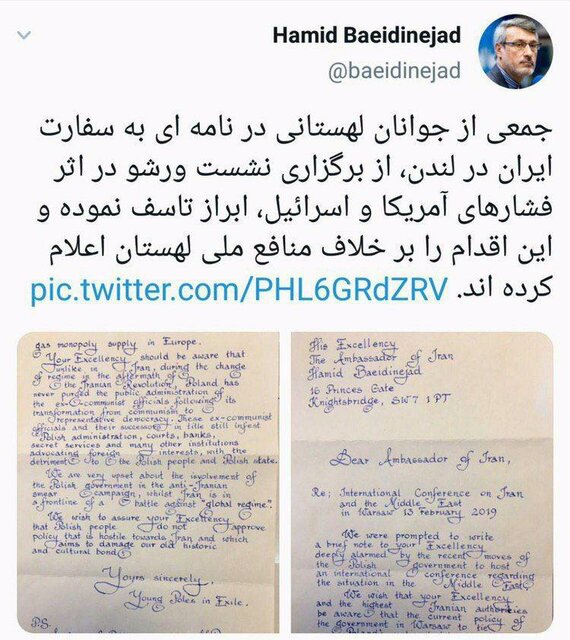 Hamid Baeidinejad
@baeidinejad
جمعی از جوانان لهستانی در نامه ای به سفارت
ایران در لندن، از برگزاری نشست ورشو در اثر
فشارهای آمریکا و اسرائیل، ابراز تاسف نموده و
این اقدام را بر خلاف منافع ملی لهستان اعلام
کرده اند. pic.twitter.com/PHL6GRdZRV
His Excellency
The Ambassador of Iran
Hamid Baeidinejad
16 Princes Gate
Knightsbridge, SW7 1PT
Dear Ambassador of Iran,
Re; International Conference on Iran
and the Middle East
in Warsaw 13 February 2019
We were prompted to write
a brief note to your Excellency
deeply alarmed by the recent moves of
the Polish government to host
an international conference regarding
the situation in the Middle East.
We wish that your Excellency
and the highest Iranian authorities
be aware that the current policy of
the government in Warsaw to
gas monopoly supply in Europe.
Your Excellency should be aware that
unlike in Iran, during the change
of regime in the aftermath of
the Iranian Revolution, Poland has
never purged the public administration of
the ex-communist officials following its
transformation from communism to
representative democracy. These ex-communist
officials and their successors in title still infest
Polish administration, courts, banks,
secret services and many other institutions
advocating foreign interests, with the
detriment to the Polish people and Polish state.
We are very upset about the involvement of
the Polish government in the anti-Iranian
smear campaign, whilst Iran is in
a frontline of a battle against "global regime".
We wish to assure your Excellency
that Polish people do not approve
policy that is hostile towards Iran and which
aims to damage our old historic
and cultural bond.
Yours sincerely,
Young Poles in Exile.
P.S.